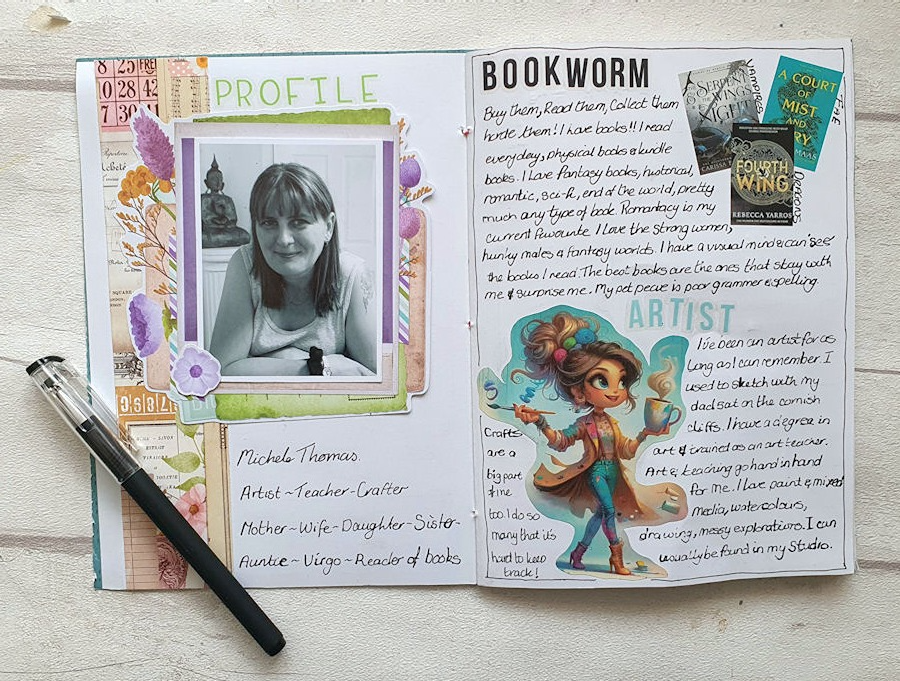 PROFILE
Michele Thomas.
Artist ~ Teacher - Crafter
Mother ~ Wife - Daughter - Sister -
Auntie ~ Virgo ~ Reader of books
8 25 FRE
10 28 42
0 34
BOOKWORM
Buy them, Read them, Collect them
horde them! I love books!! I read
everyday, physical books & kindle
books. I love fantasy books, historical,
romantic, sci-fi, end of the world, pretty
much any type of book. Romantacy is my
current favourite. I love the strong women,
hunky males & fantasy worlds. I have a visual mind & can 'see'
the books I read. The best books are the ones that stay with
me & surprise me. My pet peave is poor grammer & spelling
SERPENT
WINGS
NIGHT
CARISSA
VAMPIRES
A COURT
OF
MIST
AND
FURY
MAAS
FAE
FOURTH
WING
REBECCA YARROS
DRAGONS
ARTIST
I've been an artist for as
long as I can remember. I
used to sketch with my
dad sat on the cornish
cliffs. I have a degree in
art & trained as an art teacher.
Art & teaching go hard in hand
for me. I love paint & mixed
media, watercolours,
drawing, messy explorations. I can
usually be found in my Studio.
Crafts
are a
big part
of me
too. I do so
many that it's
hard to keep
track!